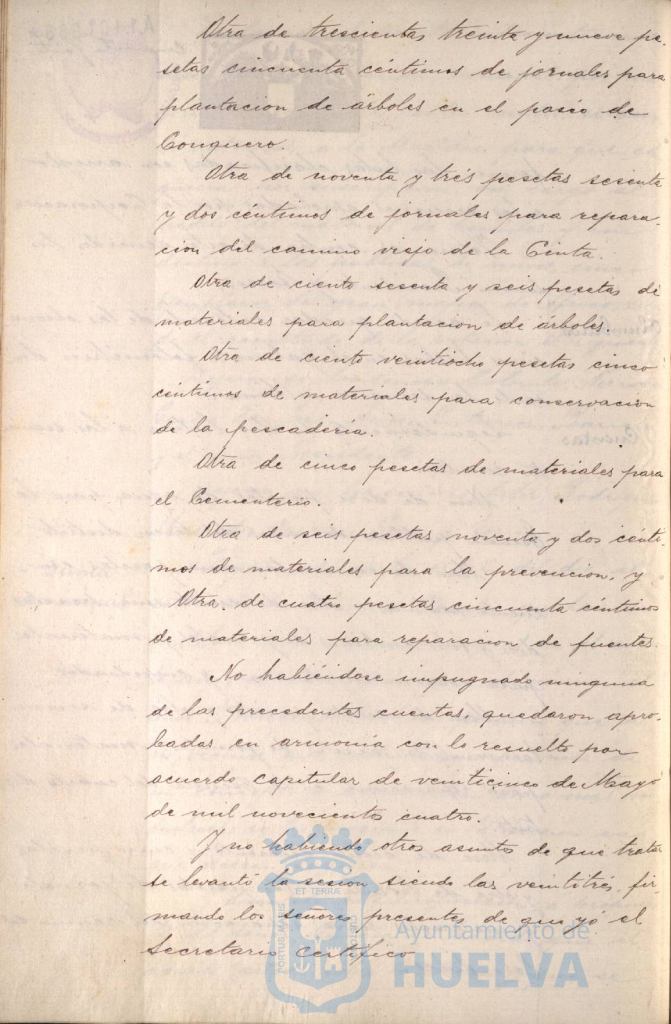 Otra de trescientas treinta y nueve pe-
setas cincuenta céntimos de jornales para
plantacion de árboles en el paseo de
Conquero.
Otra de noventa y trés pesetas sesenta
y dos céntimos de jornales para repara-
cion del camino viejo de la Cinta.
Otra de ciento sesenta y seis pesetas de
materiales para plantacion de árboles.
Otra de ciento veintiocho pesetas cinco
céntimos de materiales para conservacion
de la pescadería.
Otra de cinco pesetas de materiales para
el Cementerio.
Otra de seis pesetas noventa y dos cénti-
mos de materiales para la prevencion, y
Otra de cuatro pesetas cincuenta céntimos
de materiales para reparacion de fuentes.
No habiéndose impugnado ninguna
de las precedentes cuentas, quedaron apro-
badas en armonía con lo resuelto por
acuerdo capitular de veinticinco de Mayo
de mil novecientos cuatro.
Y no habiendo otros asuntos de que tratar
se levantó la sesion siendo las veintitrés, fir-
mando los señores presentes de que yó el
Secretario certifico
PORTUS MARIS ET TERRÆ CUSTODIA
Ayuntamiento de
HUELVA